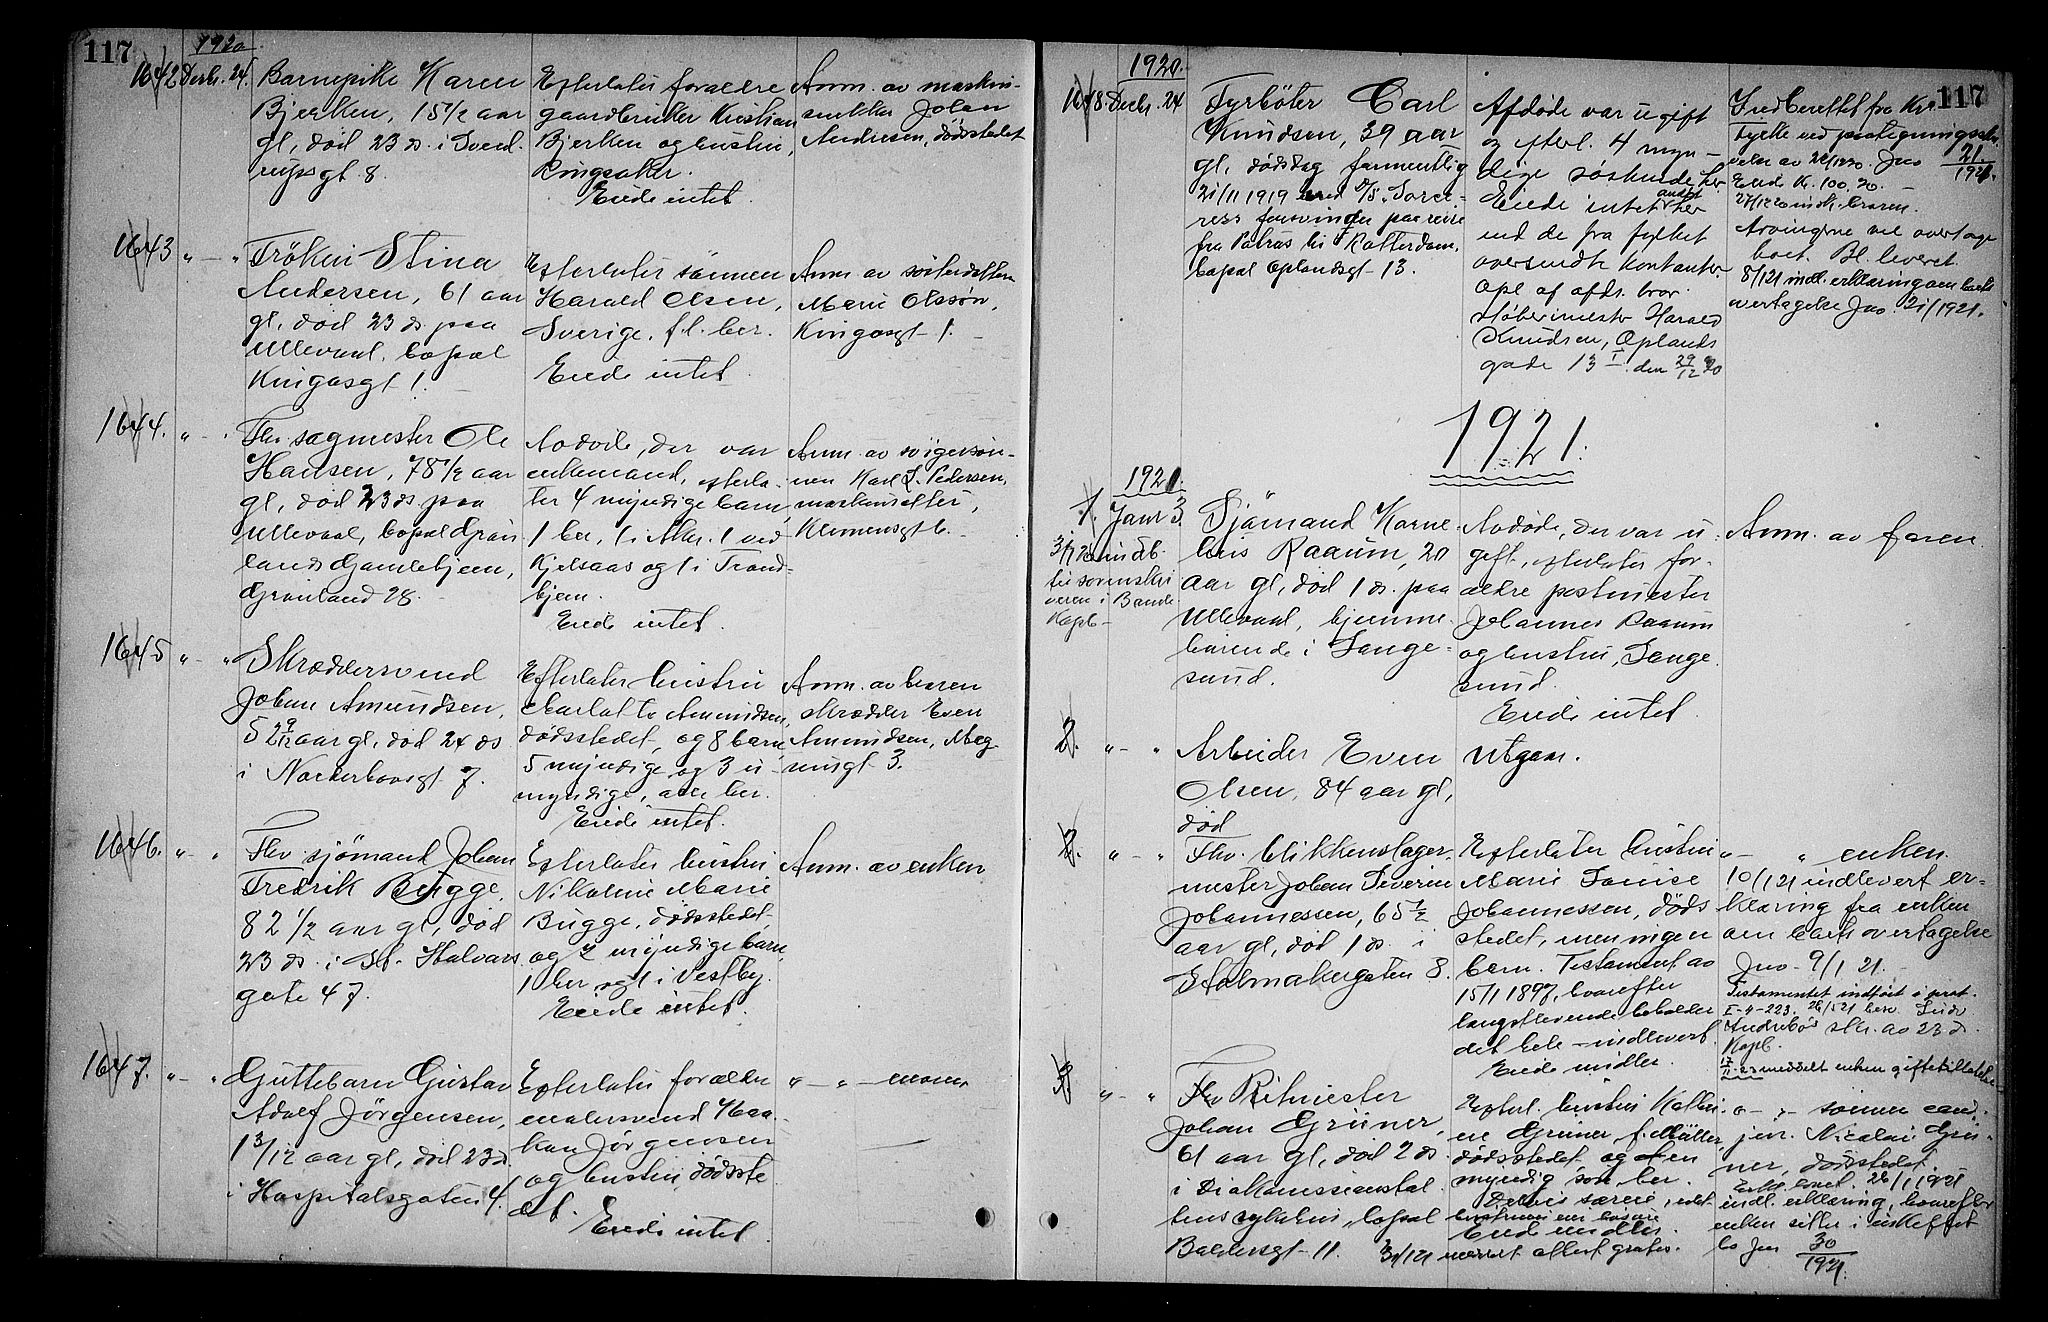 117
1920
1642 Decbr. 24.
Barnepike Karen
Bjerken, 15 1/2 aar
gl, död 23 ds. i Svend-
rupsgt 8.
Efterlater forældre
gaardbruker Kristian
Bjerken og hustru,
Ringsaker.
Eiede intet.
Anm. av maskin-
snekker Johan
Andresen, dödsstedet
1643 " — "
Fröken Stina
Andersen, 61 aar
gl, död 23 ds paa
Ullevaal, bopæl
Kingosgt 1.
Efterlater sönnen
Harald Olsen,
Sverige, f.l. ber.
Eiede intet.
Anm. av søsterdatter
Marie Olssön,
Kingosgt 1.
1644. " — "
Fhv sagmester Ole
Hansen, 78 1/2 aar
gl, död 23 ds paa
Ullevaal, bopæl Grön
lands Gamlehjem,
Grönland 28.
Avdöde, der var
enkemand, efterla-
ter 4 myndige barn,
1 her, 1 i Aker, 1 ved
Kjelsaas og 1 i Trond-
hjem.
Eiede intet.
Anm. av svigersön-
nen Karl L. Pedersen,
maskinsetter,
Klemensgt 6.
1645 " — "
Skræddersvend
Johan Amundsen,
52 9/12 aar gl, död 24 ds
i Norderhovsgt 7.
Efterlater hustru
Charlotte Amundsen,
dödsstedet, og 8 barn,
5 myndige og 3 u-
myndige, alle her.
Eiede intet.
Anm. av broren
skrædder Even
Amundsen, Mog
ensgt 3.
1646. " — "
Fhv. sjömand Johan
Fredrik Bugge,
82 1/2 aar gl, död
23 ds. i St. Halvars
gate 47.
Efterlater hustru
Nikoline Marie
Bugge, dödsstedet
og 2 myndige barn,
1 her og 1 i Vestby.
Eiede intet.
Anm. av enken
1647. " — "
Guttebarn Gustav
Adolf Jörgensen,
1 3/12 aar gl, död 23 ds.
i Hospitalsgaten 4.
Efterlater forældre
malersvend Haa-
kon Jörgensen
og hustru, dödsste
det.
Eiede intet.
" — " — moren
117
1920.
1648 Decbr. 24
Fyrböter Carl
Knudsen, 39 aar
gl, dödsdag formentlig
21/11 1919 med D/S. Sorce-
ress forsvinden paa reise
fra Patras til Rotterdam,
bopæl Oplandsgt 13.
Afdöde var ugift
og efterl. 4 myn-
dige söskende her
Eiede intet andet her
end de fra fylket
oversendte kontanter.
Opl af afds. bror
Stöberimester Harald
Knudsen, Oplands
gade 13 I. den 29/12 20
Indberettet fra Kra
Fylke ved paategningsskri
velse av 22/12 20. Jno 21/1921.
Eiede Kr. 100.20.
27/12 20 indk. broren.
Arvingerne vil overtage
boet. Bl. leveret.
8/1 21 indl. erklæring om boets
overtagelse Jno. 21/1921.
1921.
1921.
1. Janr 3.
3/1 21 indb.
til sorenskri
veren i Bamble
Kopib
Sjömand Korne-
lius Raaum, 20
aar gl, död 1 ds. paa
Ullevaal, hjemme-
hörende i Lange-
sund.
Avdöde, der var u-
gift, efterlater for-
ældre postmester
Johannes Raaum
og hustru, Lange
sund.
Eiede intet.
Anm. av faren
2. " — "
Arbeider Even
Olsen, 84 aar gl,
död
Utgaar.
2. " — "
Fhv. blikkenslager-
mester Johan Severin
Johannessen, 65 1/2
aar gl, död 1 ds. i
Stolmakergaten 8.
Efterlater hustru
Marie Louise
Johannessen, döds
stedet, men ingen
barn. Testament av
15/1 1897, hvorefter
længstlevende beholder
det hele — indlevert.
Eiede midler.
" — " enken.
10/1 21 indlevert er-
klæring fra enken
om boets overtagelse
Jno - 9/1 21.
Testamentet indført i prot.
I-4-223. 26/5 21 besv. Lindv
Andrebös skr. av 23 ds.
Kopib.
17/11 23 meddelt enken giftetilladelse
3. " — "
Fhv Ritmester
Johan Grüner,
61 aar gl, död 2 ds.
i Diakonissеanstal
tens sykehus, bopæl
Baldersgt 11.
Efterl. hustru Kathri
ne Grüner f. Müller,
dödsstedet og en
myndig sön her.
Delvis særeie, idet
hustruen eier husene
Eiede midler.
3/1 21 utskrevet attest gratis.
" — " sönnen cand.
jur. Nicolai Grü-
ner, dödsstedet.
Erkl. levert. 26/1 1921
indl. erklæring, hvorefter
enken sitter i uskiftet
bo Jnr 30/1921.